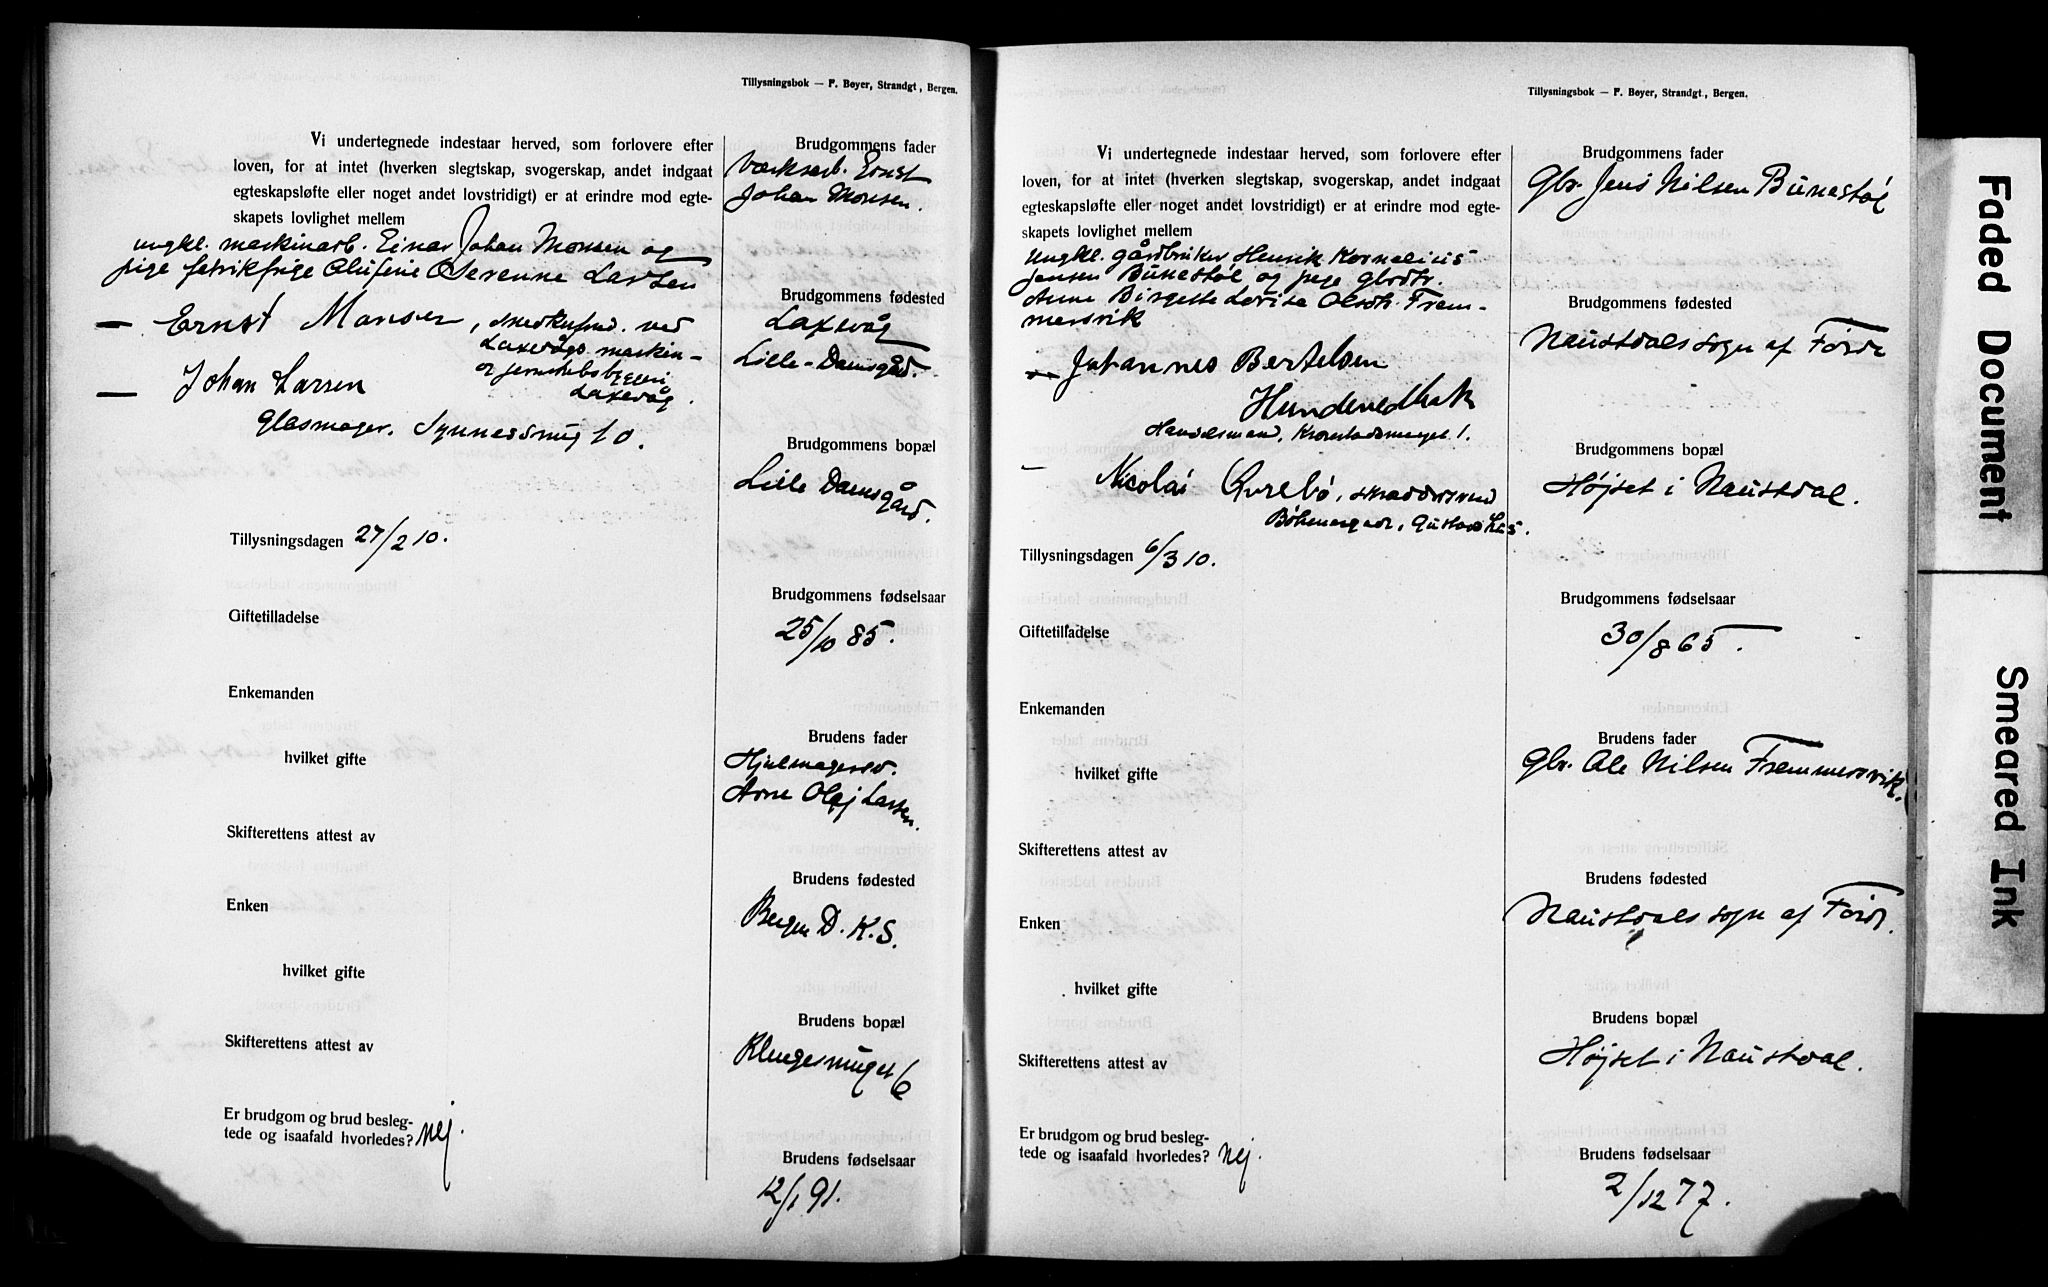 Tillysningsbok — F. Bøyer, Strandgt., Bergen.
Vi undertegnede indestaar herved, som forlovere efter
loven, for at intet (hverken slegtskap, svogerskap, andet indgaat
egteskapsløfte eller noget andet lovstridigt) er at erindre mod egte-
skapets lovlighet mellem
ungkl. maskinarb. Einar Johan Monsen og
pige fabrikpige Olufine Severine Larsen
— Ernst Monsen, ved
Laxevågs maskin-
og jernskibsbyggeri
Laxevåg.
— Johan Larsen
Glasmager, 10.
Tillysningsdagen 27/2 10.
Giftetilladelse
Enkemanden
hvilket gifte
Skifterettens attest av
Enken
hvilket gifte
Skifterettens attest av
Er brudgom og brud besleg-
tede og isaafald hvorledes? Nej.
Brudgommens fader
Værksarb. Ernst
Johan Monsen.
Brudgommens fødested
Laxevåg
Lille-Damsgård.
Brudgommens bopæl
Lille Damsgård.
Brudgommens fødselsaar
25/10 85.
Brudens fader
Hjulmagersv.
Arne Olaj Larsen.
Brudens fødested
Bergen D.K.S.
Brudens bopæl
6
Brudens fødselsaar
12/1 91.
Tillysningsbok — F. Bøyer, Strandgt., Bergen.
Vi undertegnede indestaar herved, som forlovere efter
loven, for at intet (hverken slegtskap, svogerskap, andet indgaat
egteskapsløfte eller noget andet lovstridigt) er at erindre mod egte-
skapets lovlighet mellem
ungkl. gårdbruker Henrik Kornelius
Jensen Bunestøl og pige gbrdtr.
Anne Birgitte Lovise Olsdtr. Frem-
mersvik
— Johannes Bertelsen
Hundevedbak
Handelsmand, 1.
— Nicolai
Tillysningsdagen 6/3 10.
Giftetilladelse
Enkemanden
hvilket gifte
Skifterettens attest av
Enken
hvilket gifte
Skifterettens attest av
Er brudgom og brud besleg-
tede og isaafald hvorledes? Nej.
Brudgommens fader
Gbr. Jens Nilsen Bunestøl
Brudgommens fødested
Naustdals sogn af Førde
Brudgommens bopæl
Højset i Naustdal.
Brudgommens fødselsaar
30/8 65.
Brudens fader
Gbr. Ole Nilsen Fremmersvik.
Brudens fødested
Naustdals sogn af Førde.
Brudens bopæl
Højset i Naustdal.
Brudens fødselsaar
2/12 77.
Faded Document
Smeared Ink